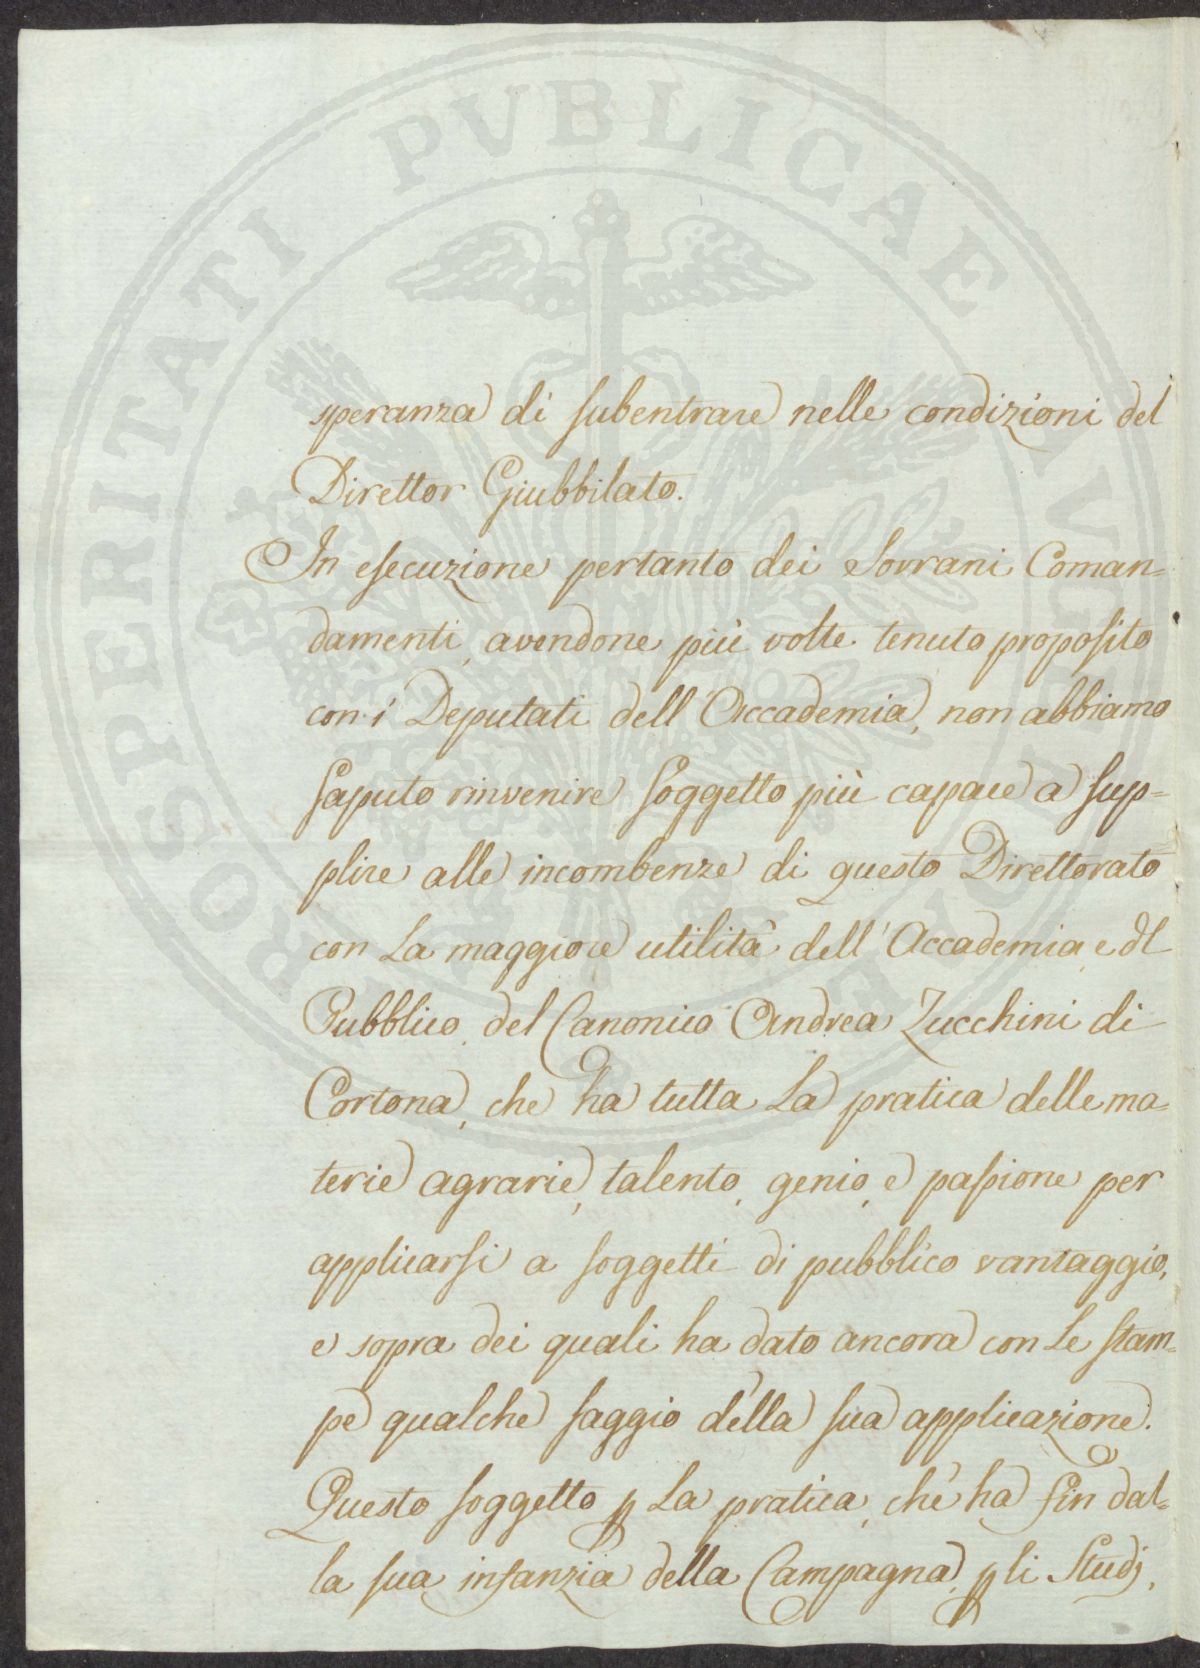 PROSPERITATI PVBLICAE AVGENDAE
speranza di subentrare nelle condizioni del
Direttor Giubbilato.
In esecuzione pertanto dei Sovrani Coman=
damenti, avendone più volte tenuto proposito
con i Deputati dell'Accademia, non abbiamo
saputo rinvenire soggetto più capace a sup=
plire alle incombenze di questo Direttorato
con la maggiore utilità dell'Accademia, e dl
Pubblico, del Canonico Andrea Zucchini di
Cortona, che ha tutta la pratica delle ma=
terie agrarie, talento, genio, e passione per
applicarsi a soggetti di pubblico vantaggio,
e sopra dei quali ha dato ancora con le stam=
pe qualche saggio della sua applicazione.
Questo soggetto p la pratica, che ha fin dal=
la sua infanzia della Campagna, p li Studj,